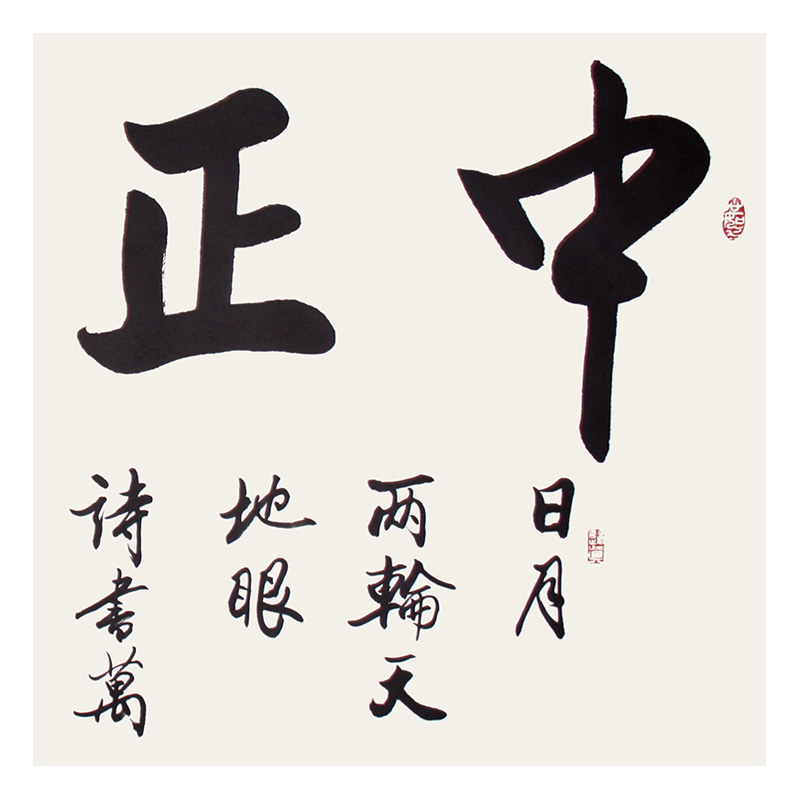 中正
日月
两輪天
地眼
詩書萬